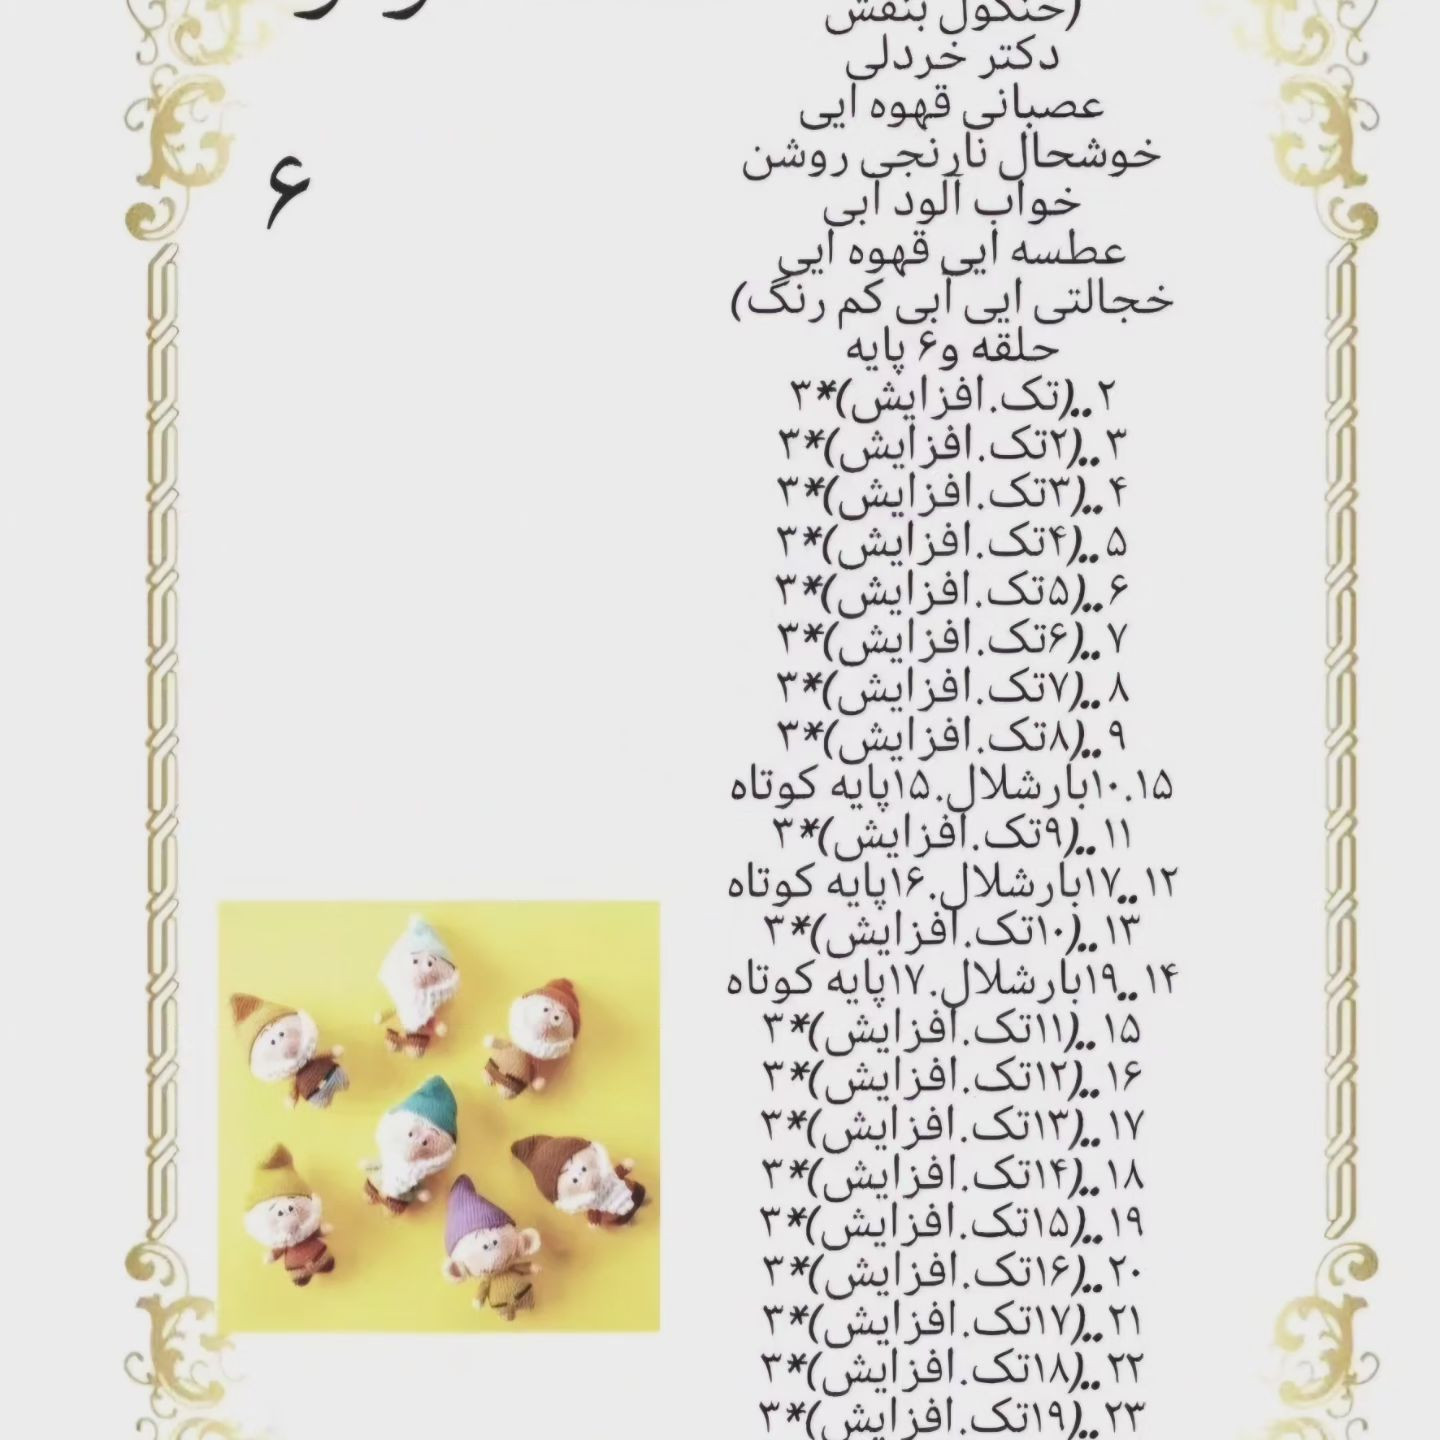 (خنگول بنفش
دکتر خردلی
عصبانی قهوه ایی
خوشحال نارنجی روشن
خواب آلود آبی
عطسه ایی قهوه ایی
خجالتی ایی آبی کم رنگ)
حلقه و۶ پایه
۲..(تک.افزایش)*۳
۳..(۲تک.افزایش)*۳
۴..(۳تک.افزایش)*۳
۵..(۴تک.افزایش)*۳
۶..(۵تک.افزایش)*۳
۷..(۶تک.افزایش)*۳
۸..(۷تک.افزایش)*۳
۹..(۸تک.افزایش)*۳
۱۰.۱۵بارشلال.۱۵پایه کوتاه
۱۱..(۹تک.افزایش)*۳
۱۲..۱۷بارشلال.۱۶پایه کوتاه
۱۳..(۱۰تک.افزایش)*۳
۱۴..۱۹بارشلال.۱۷پایه کوتاه
۱۵..(۱۱تک.افزایش)*۳
۱۶..(۱۲تک.افزایش)*۳
۱۷..(۱۳تک.افزایش)*۳
۱۸..(۱۴تک.افزایش)*۳
۱۹..(۱۵تک.افزایش)*۳
۲۰..(۱۶تک.افزایش)*۳
۲۱..(۱۷تک.افزایش)*۳
۲۲..(۱۸تک.افزایش)*۳
۲۳..(۱۹تک.افزایش)*۳
۶